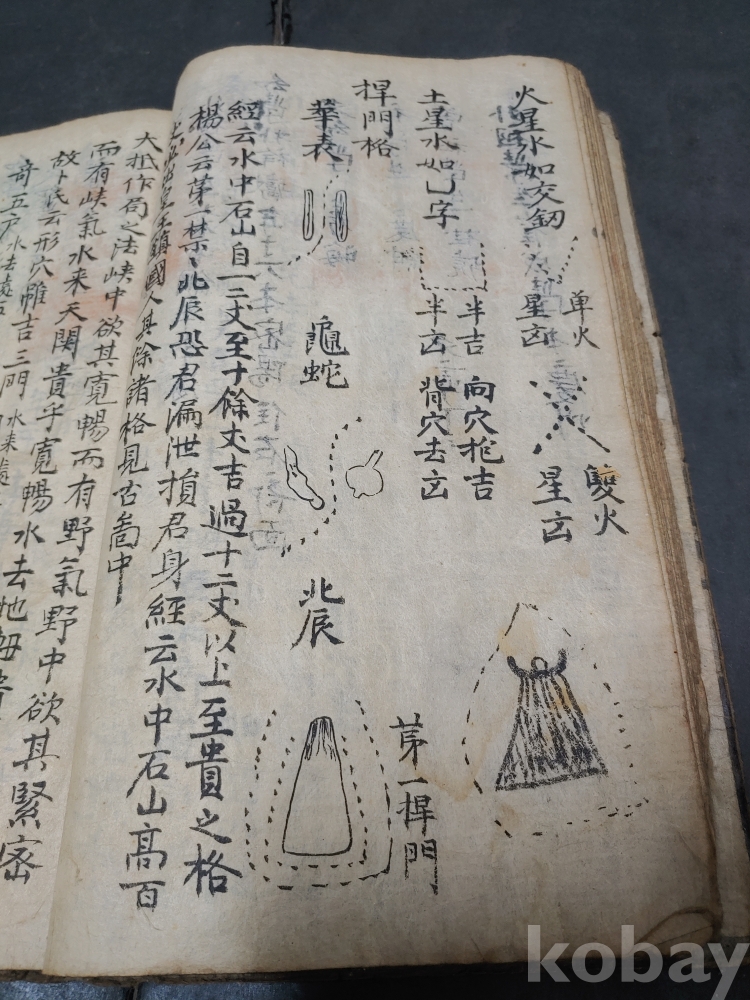 火星水如交釰
單火
星㐫
雙火
星㐫
土星水如乚字
半吉
半㐫
向穴抱吉
背穴去㐫
捍門格
第一捍門
華表
龜蛇
北辰
經云水中石山自一二丈至十餘丈吉過十二丈以上至貴之格
楊公云第一禁〻北辰恐君漏泄損君身經云水中石山高百
鎮國人其除諸格見古啚中
大抵作局之法峽中欲其寬暢而有野氣野中欲其緊密
而有峽氣水来天関貴乎寬暢水去地
故卜氏云形穴惟吉三門水来
奇五户水法
kobay